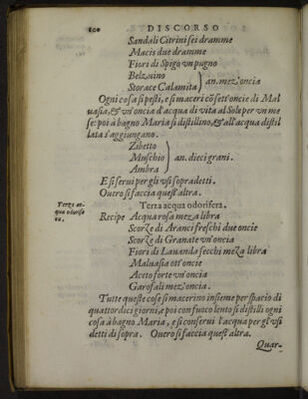 100 DISCORSO
Sandali Citrini sei dramme
Macis due dramme
Fiori di Spigo vn pugno
Belzuino
Storace Calamita } an. mez'oncia
Ogni cosa si pesti, e si maceri cō sett'oncie di Mal
uasia, & vn'oncia d'acqua di vita al Sole per vn me
se: poi à bagno Maria si distillino, & all'acqua distil
lata s'aggiungano.
Zibetto
Muschio } an. dieci grani.
Ambra
E si serui per gli vsi sopradetti.
Ouero si faccia quest'altra.
Terza ac-
qua odorife
ra.
Terza acqua odorifera.
Recipe Acqua rosa meza libra
Scorze di Aranci freschi due oncie
Scorze di Granate vn'oncia
Fiori di Lauanda secchi meza libra
Maluasia ott'oncie
Aceto forte vn'oncia
Garofali mez'oncia.
Tutte queste cose si macerino insieme per spacio di
quattordici giorni, e poi con fuoco lento si distilli ogni
cosa à bagno Maria, e si conserui l'acqua per gl'vsi
detti di sopra. Ouero si faccia quest'altra.
Quar-